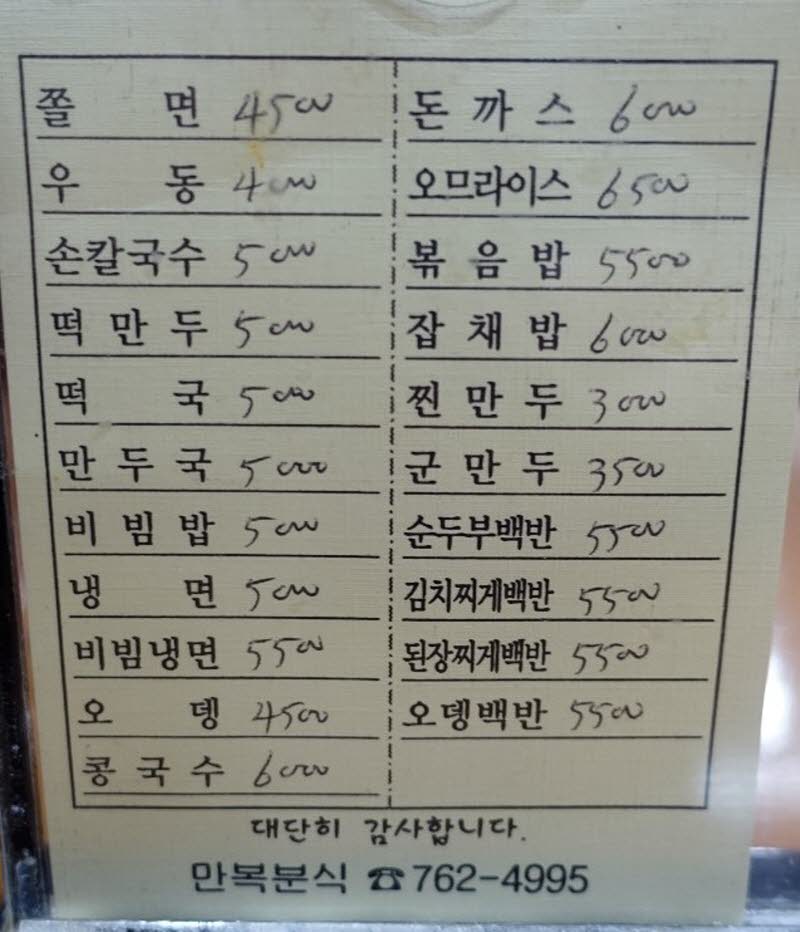 쫄면 4500
우동 4000
손칼국수 5000
떡만두 5000
떡국 5000
만두국 5000
비빔밥 5000
냉면 5000
비빔냉면 5500
오뎅 4500
콩국수 6000
돈까스 6000
오므라이스 6500
볶음밥 5500
잡채밥 6000
찐만두 3000
군만두 3500
순두부백반 5500
김치찌게백반 5500
된장찌게백반 5500
오뎅백반 5500
대단히 감사합니다.
만복분식 ☎762-4995